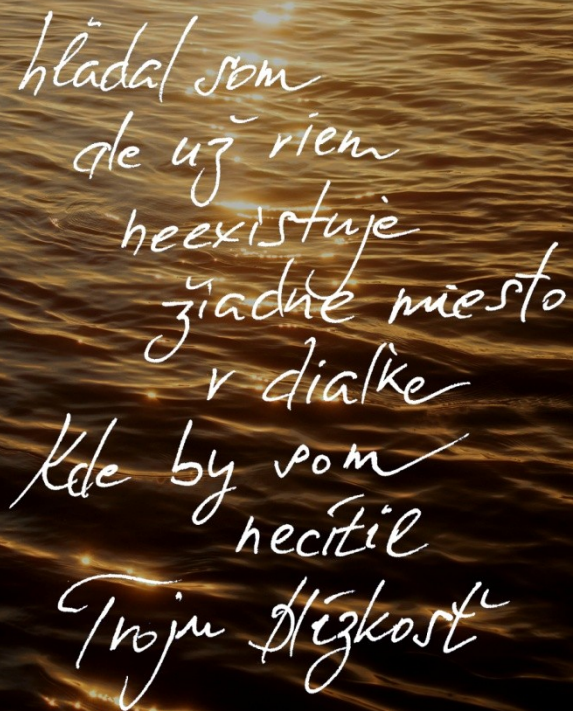 hľadal som
ale už viem
neexistuje
žiadne miesto
v diaľke
Kde by som
necítil
Tvoju Blízkosť